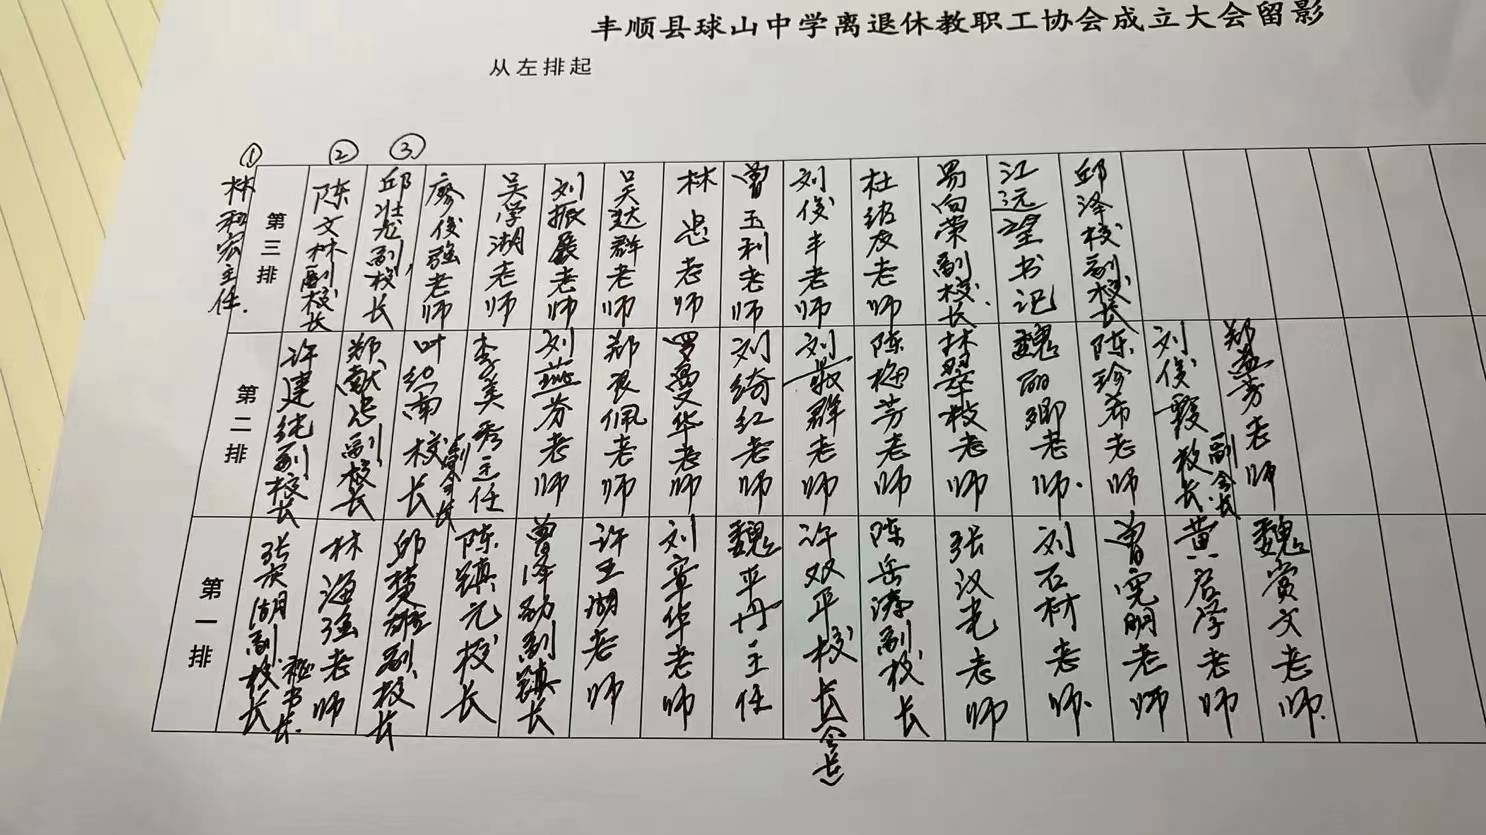 丰顺县球山中学离退休教职工协会成立大会留影
从左排起
① ② ③
第三排
林 主任.
陈文林副校长
邱壮 副校长
廖俊强老师
吴学湖老师
刘振 老师
吴达群老师
林忠老师
曾玉利老师
刘俊丰老师
杜 友老师
易向荣副校长.
江远望书记
邱泽校副校长
第二排
许建纯副校长
郑献忠副校长
叶绍南校长 副会长
李美秀主任
刘 芬老师
郑良佩老师
罗曼华老师
刘绮红老师
刘 群老师
陈梅芳老师
林翠枝老师
魏丽卿老师.
陈珍希老师
刘俊霞校长 副会长
郑 芳老师
第一排
张 湖副校长 秘书长.
林海强老师
邱楚雄副校长
陈镇元校长
曾泽 副镇长
许玉湖老师
刘 华老师
魏平丹主任
许双平校长(会长)
陈岳 副校长
张汉 老师
刘石材老师.
曾宪明老师
黄启学老师
魏 文老师.